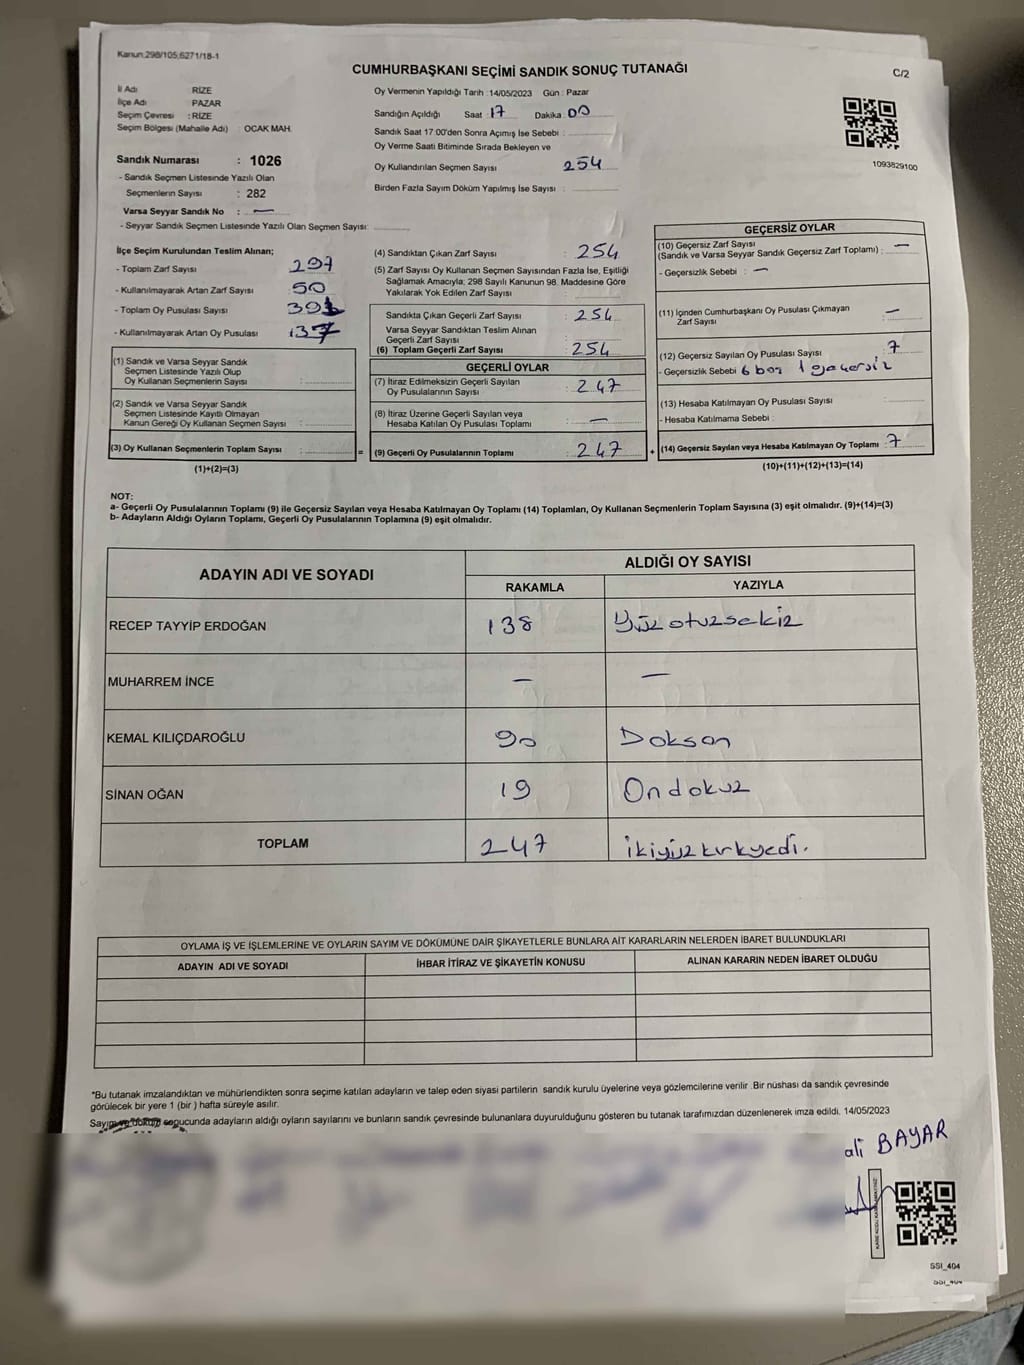 Kanun:298/105;6271/18-1
CUMHURBAŞKANI SEÇİMİ SANDIK SONUÇ TUTANAĞI
C/2
İl Adı : RİZE
İlçe Adı : PAZAR
Seçim Çevresi : RİZE
Seçim Bölgesi (Mahalle Adı) : OCAK MAH.
Sandık Numarası : 1026
- Sandık Seçmen Listesinde Yazılı Olan
Seçmenlerin Sayısı : 282
Varsa Seyyar Sandık No : —
- Seyyar Sandık Seçmen Listesinde Yazılı Olan Seçmen Sayısı:
Oy Vermenin Yapıldığı Tarih :14/05/2023 Gün : Pazar
Sandığın Açıldığı Saat : 17 Dakika : 00
Sandık Saat 17:00'den Sonra Açımış İse Sebebi :
Oy Verme Saati Bitiminde Sırada Bekleyen ve
Oy Kullandırılan Seçmen Sayısı 254
Birden Fazla Sayım Döküm Yapılmış İse Sayısı :
1093829100
İlçe Seçim Kurulundan Teslim Alınan;
- Toplam Zarf Sayısı : 297
- Kullanılmayarak Artan Zarf Sayısı : 50
- Toplam Oy Pusulası Sayısı : 391
- Kullanılmayarak Artan Oy Pusulası : 137
(1) Sandık ve Varsa Seyyar Sandık
Seçmen Listesinde Yazılı Olup
Oy Kullanan Seçmenlerin Sayısı :
(2) Sandık ve Varsa Seyyar Sandık
Seçmen Listesinde Kayıtlı Olmayan
Kanun Gereği Oy Kullanan Seçmen Sayısı :
(3) Oy Kullanan Seçmenlerin Toplam Sayısı :
=
(1)+(2)=(3)
(4) Sandıktan Çıkan Zarf Sayısı : 254
(5) Zarf Sayısı Oy Kullanan Seçmen Sayısından Fazla İse, Eşitliği
Sağlamak Amacıyla; 298 Sayılı Kanunun 98. Maddesine Göre
Yakılarak Yok Edilen Zarf Sayısı :
Sandıkta Çıkan Geçerli Zarf Sayısı : 254
Varsa Seyyar Sandıktan Teslim Alınan
Geçerli Zarf Sayısı :
(6) Toplam Geçerli Zarf Sayısı : 254
GEÇERLİ OYLAR
(7) İtiraz Edilmeksizin Geçerli Sayılan
Oy Pusulalarının Sayısı : 247
(8) İtiraz Üzerine Geçerli Sayılan veya
Hesaba Katılan Oy Pusulası Toplamı : —
(9) Geçerli Oy Pusulalarının Toplamı : 247
+
GEÇERSİZ OYLAR
(10) Geçersiz Zarf Sayısı
(Sandık ve Varsa Seyyar Sandık Geçersiz Zarf Toplamı) : —
- Geçersizlik Sebebi : —
(11) İçinden Cumhurbaşkanı Oy Pusulası Çıkmayan
Zarf Sayısı : —
(12) Geçersiz Sayılan Oy Pusulası Sayısı : 7
- Geçersizlik Sebebi 6 boş 1 geçersiz
(13) Hesaba Katılmayan Oy Pusulası Sayısı :
- Hesaba Katılmama Sebebi :
(14) Geçersiz Sayılan veya Hesaba Katılmayan Oy Toplamı : 7
(10)+(11)+(12)+(13)=(14)
NOT:
a- Geçerli Oy Pusulalarının Toplamı (9) ile Geçersiz Sayılan veya Hesaba Katılmayan Oy Toplamı (14) Toplamları, Oy Kullanan Seçmenlerin Toplam Sayısına (3) eşit olmalıdır. (9)+(14)=(3)
b- Adayların Aldığı Oyların Toplamı, Geçerli Oy Pusulalarının Toplamına (9) eşit olmalıdır.
ADAYIN ADI VE SOYADI ALDIĞI OY SAYISI
RAKAMLA YAZIYLA
RECEP TAYYİP ERDOĞAN 138 Yüzotuzsekiz
MUHARREM İNCE — —
KEMAL KILIÇDAROĞLU 90 Doksan
SİNAN OĞAN 19 Ondokuz
TOPLAM 247 ikiyüzkırkyedi.
OYLAMA İŞ VE İŞLEMLERİNE VE OYLARIN SAYIM VE DÖKÜMÜNE DAİR ŞİKAYETLERLE BUNLARA AİT KARARLARIN NELERDEN İBARET BULUNDUKLARI
ADAYIN ADI VE SOYADI İHBAR İTİRAZ VE ŞİKAYETİN KONUSU ALINAN KARARIN NEDEN İBARET OLDUĞU
*Bu tutanak imzalandıktan ve mühürlendikten sonra seçime katılan adayların ve talep eden siyasi partilerin sandık kurulu üyelerine veya gözlemcilerine verilir .Bir nüshası da sandık çevresinde
görülecek bir yere 1 (bir ) hafta süreyle asılır.
Sayım ve döküm sonucunda adayların aldığı oyların sayılarını ve bunların sandık çevresinde bulunanlara duyurulduğunu gösteren bu tutanak tarafımızdan düzenlenerek imza edildi. 14/05/2023
ali BAYAR
SSI_404